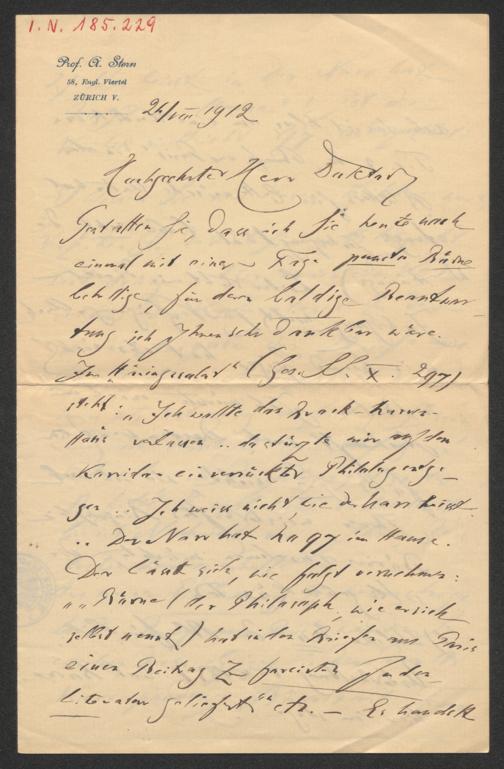 I. N. 185.229
Prof. A. Stern
58, Engl. Viertel
ZÜRICH V.
1912
Hochgeehrter Herr Doktor
Gestatten Sie, dass ich Sie heute noch
einmal mit einer Frage puncto Börne
behellige, für deren baldige Beantwor-
tung ich Ihnen sehr dankbar wäre.
Im "Häringssalat" (Ges. S. X. 297)
steht: "Ich wollte das
Haus verlassen .. da stürzte mir auf dem
Korridor ein verrückter Philolog entge-
gen .. Ich weiss nicht, wie der Narr heisst
.. Der Narr hat No 97 im Hause.
Der lässt sich, wie folgt vernehmen:
"" Börne (der Philosoph, wie er sich
selbst nennt) hat in den Briefen aus Paris
einen Beitrag zu Juden
literatur geliefert"" etc. — Es handelt